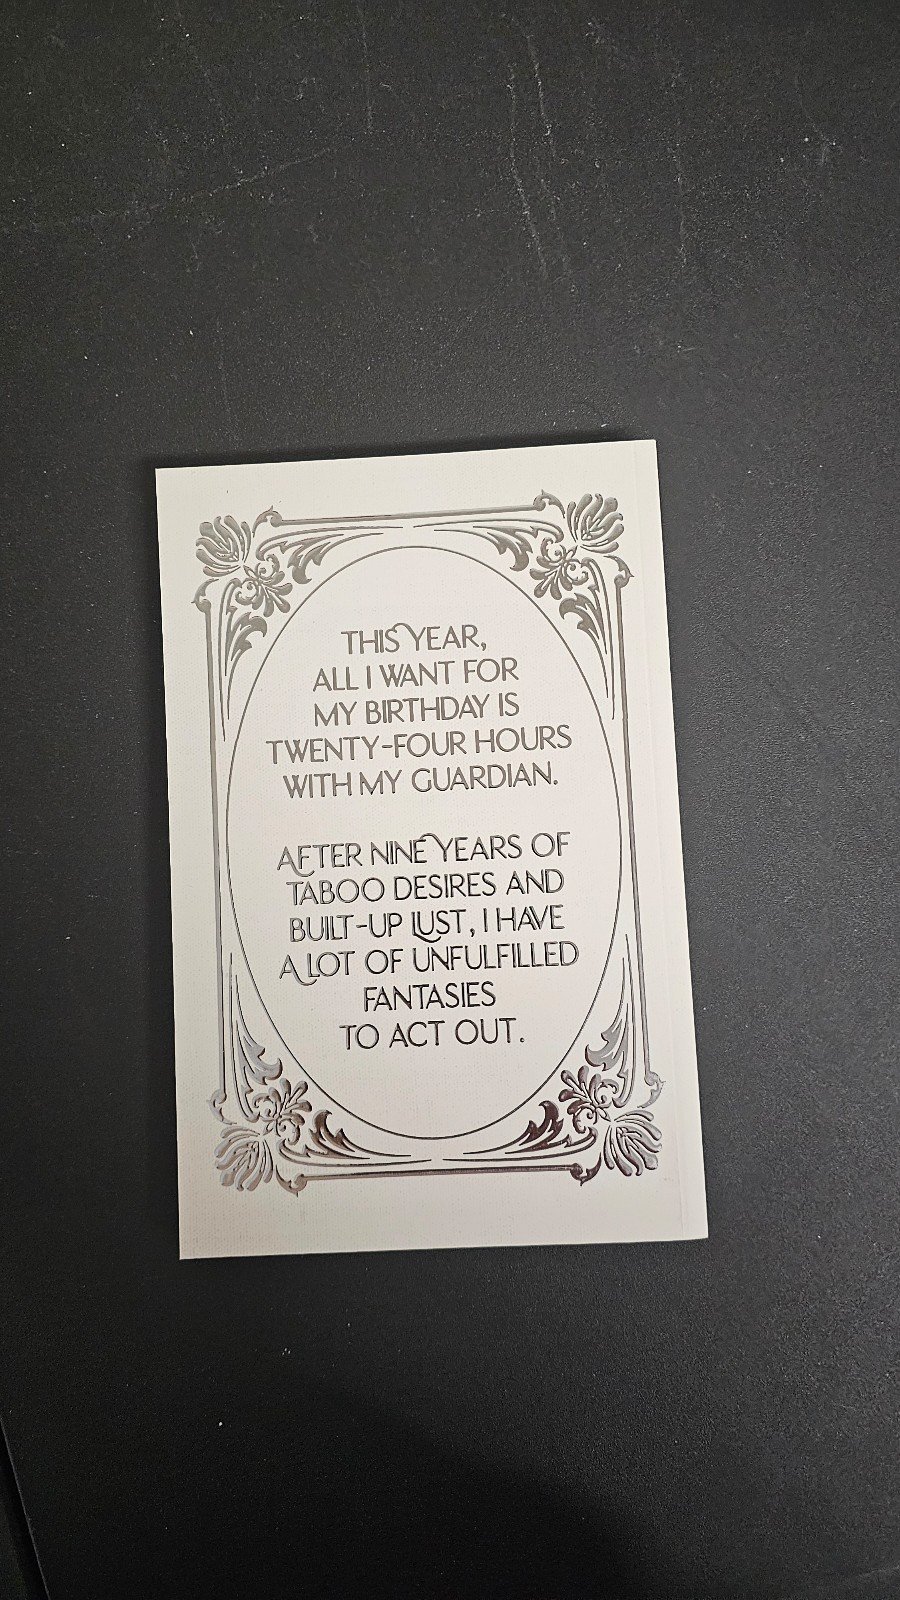 THIS YEAR,
ALL I WANT FOR
MY BIRTHDAY IS
TWENTY-FOUR HOURS
WITH MY GUARDIAN.
AFTER NINE YEARS OF
TABOO DESIRES AND
BUILT-UP LUST, I HAVE
A LOT OF UNFULFILLED
FANTASIES
TO ACT OUT.